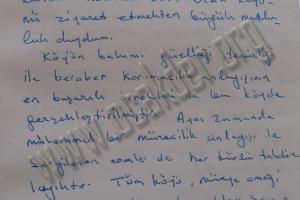 nü ziyaret etmekten büyük mutlu-
luk duydum.
Köyün bakımı güzelliği temizliği
ile beraber korumacılık anlayışının
en başarılı örnekleri de bu köyde
gerçekleştirilmiştir. Aynı zamanda
mükemmel bir müzecilik anlayışı ile
sergilenen eserler de her türlü takdire
layıktır. Tüm köyü, müzeye emeği